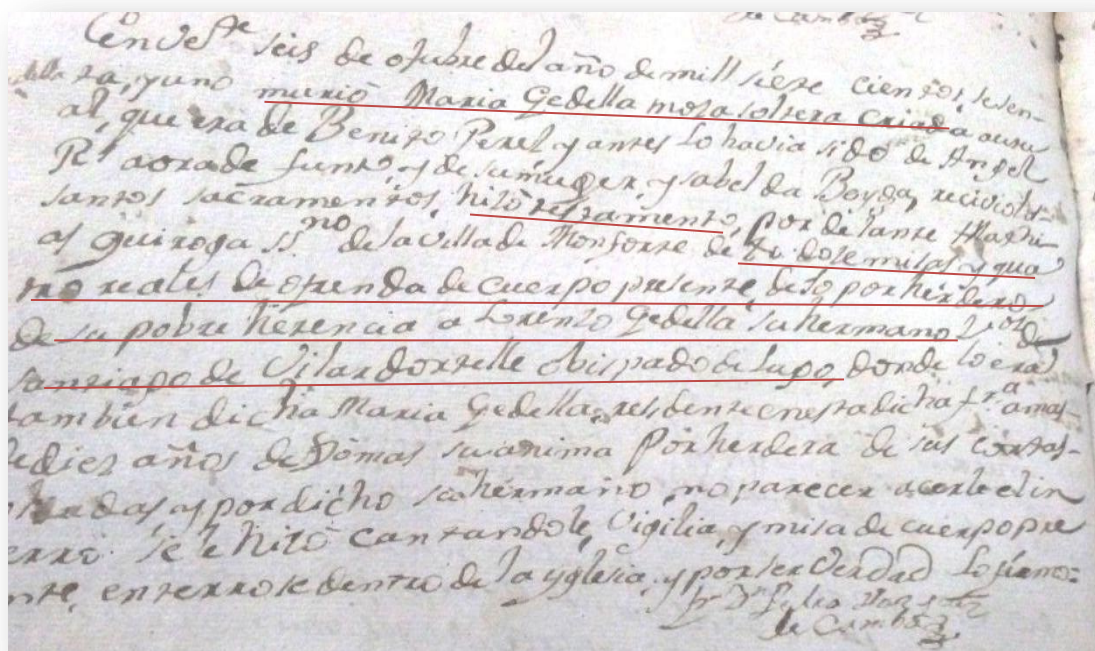 de Camba
En Ve.te seis de otubre del año de mill siete cientos, sesen-
ta, y uno murio Maria Gedella mosa soltera criada
al, que era de Benito Perel y antes lo havia sido de Angel
Rl aora de funto, y de su muger ysabel da Boyda, recivio los
santos sacramentos, hiso testamento, por delante Mathi
as Quiroga ss.no de la villa de Monforte de to dose misas y qua
tro reales de ofrenda de cuerpo presente, deto por herdero
de su pobre herencia a Lorenzo Gedella su hermano
santiago de Vilardortelle obispado de Lugo, donde lo era
tambien dicha Maria Gedella, residente en esta dicha fr.a a mas-
de diez años de Domas su anima Por herdera de sus cortas-
y por dicho su hermano no parecer aserle el in
erro se le hiso cantandole, Vigilia, y misa de cuerpo pre
nte, enterrose dentro de la yglesia, y por ser Verdad Lo firmo:
de Camba